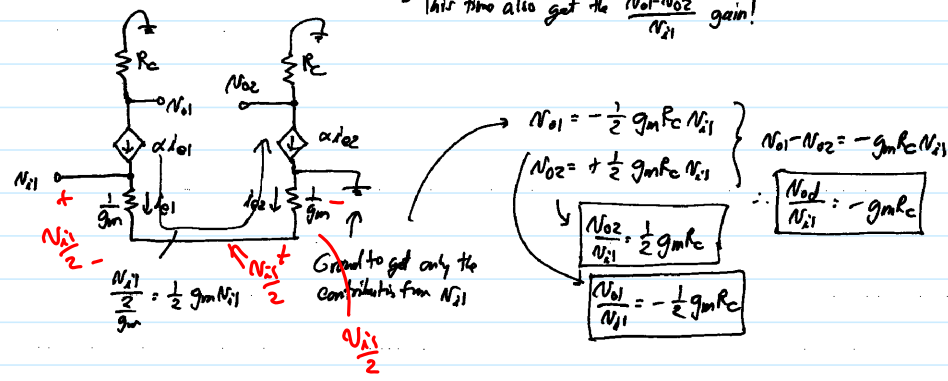 This time also get the (v_o1 - v_o2)/v_i1 gain!
R_C
R_C
v_o1
v_o2
αi_e1
αi_e2
v_i1
+
1/g_m
i_e1
i_e2
1/g_m
-
v_i1/2
-
v_i1/2
+
v_i1/(2/g_m) = 1/2 g_m v_i1
Ground to get only the
contribution from v_i1
v_i1/2
v_o1 = - 1/2 g_m R_C v_i1
v_o2 = + 1/2 g_m R_C v_i1
v_o1 - v_o2 = - g_m R_C v_i1
∴ v_od/v_i1 = - g_m R_C
v_o2/v_i1 = 1/2 g_m R_C
v_o1/v_i1 = - 1/2 g_m R_C